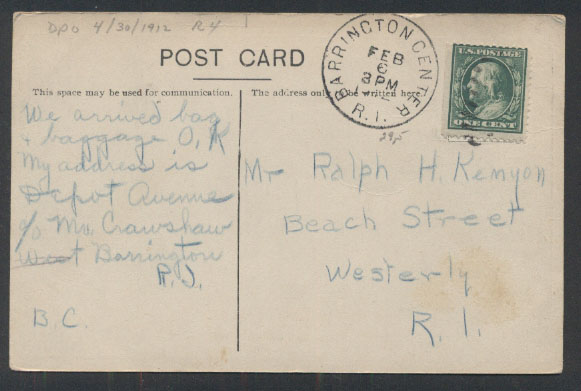 DPO 4/30/1912 R4
POST CARD
BARRINGTON CENTER
FEB
6
3PM
R.I.
U.S. POSTAGE
ONE CENT
This space may be used for communication.
The address only be written here.
We arrived bag
+ baggage O, K
My address is
Depot Avenue
c/o Mr. Crawshaw
West Barrington
R.I.
B.C.
Mr Ralph H. Kenyon
Beach Street
Westerly
R. I.